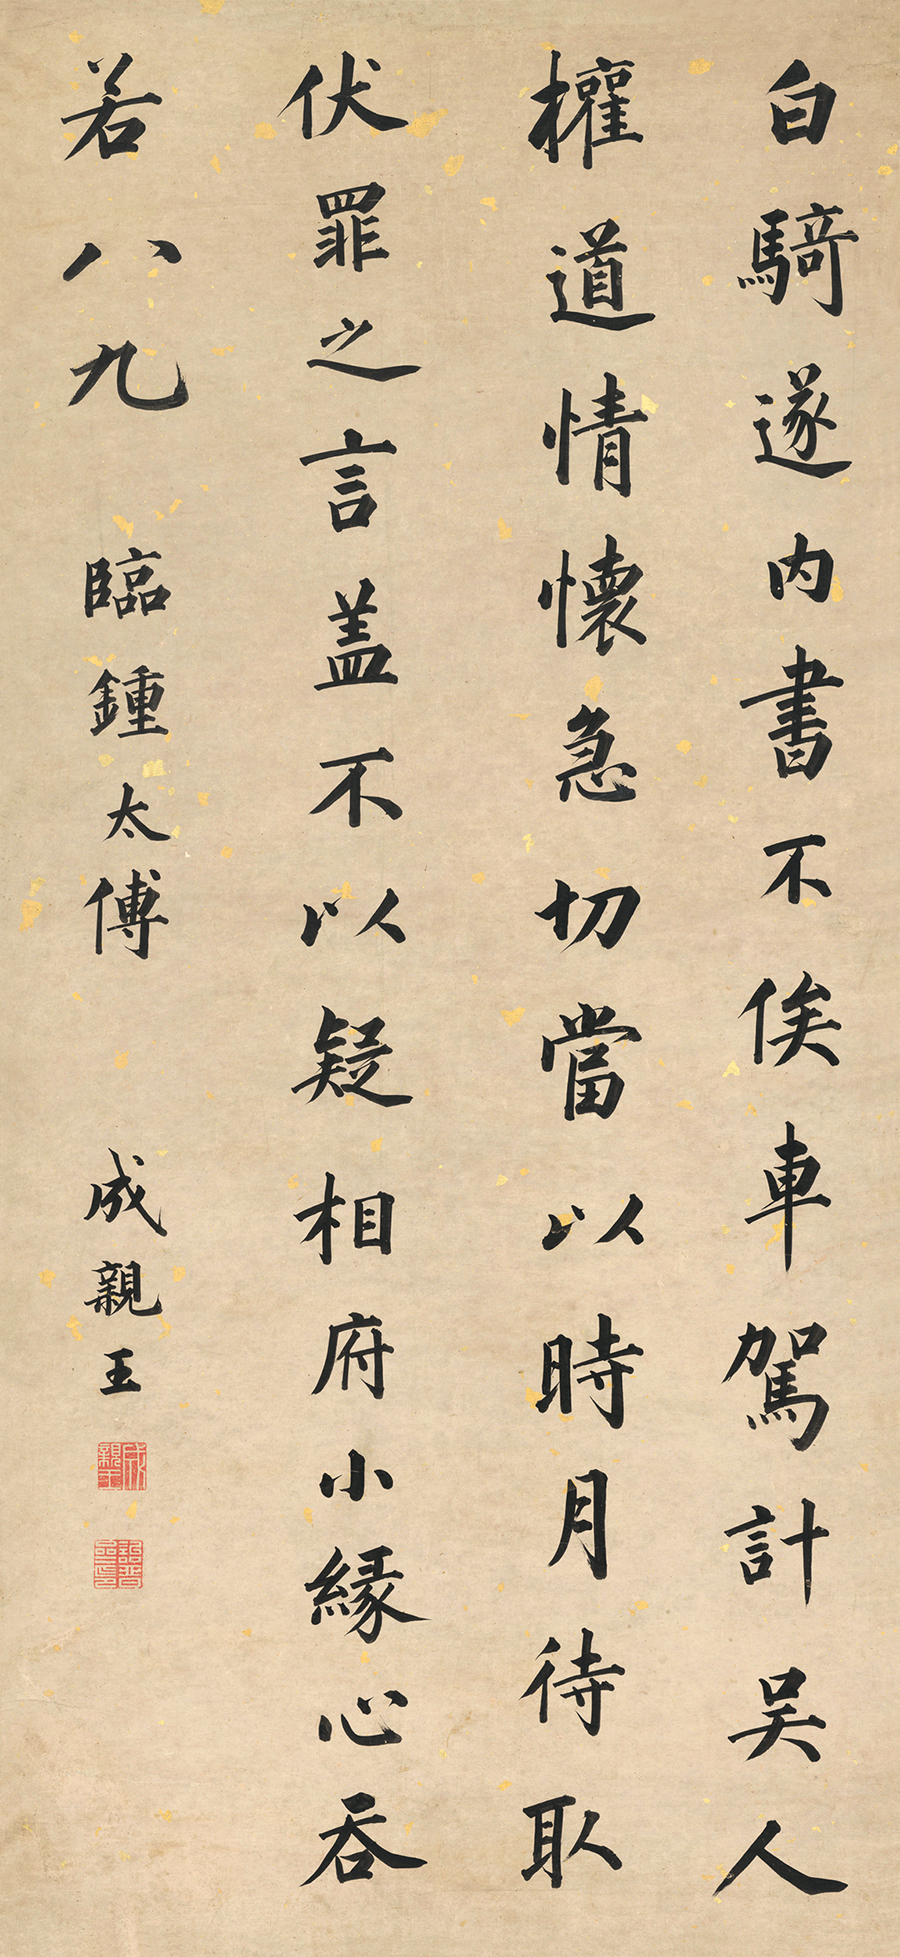 白騎遂内書不俟車駕計吴人
權道情懷急切當以時月待取
伏罪之言盖不以疑相府小縁心吞
若八九 臨鍾太傅 成親王
成親王
詒晉齋印